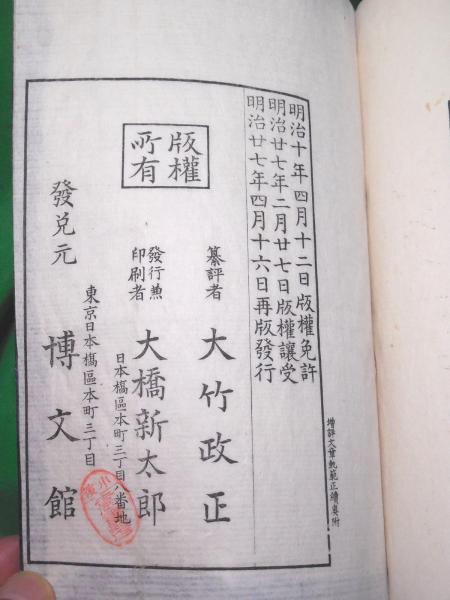 増評文章軌範正續奥附
明治十年四月十二日版權免許
明治廿七年二月廿七日版權讓受
明治廿七年四月十六日再版發行
版權
所有
纂評者 大竹政正
發行兼
印刷者 大橋新太郎
日本橋區本町三丁目八番地
發兌元 博文館
東京日本橋區本町三丁目